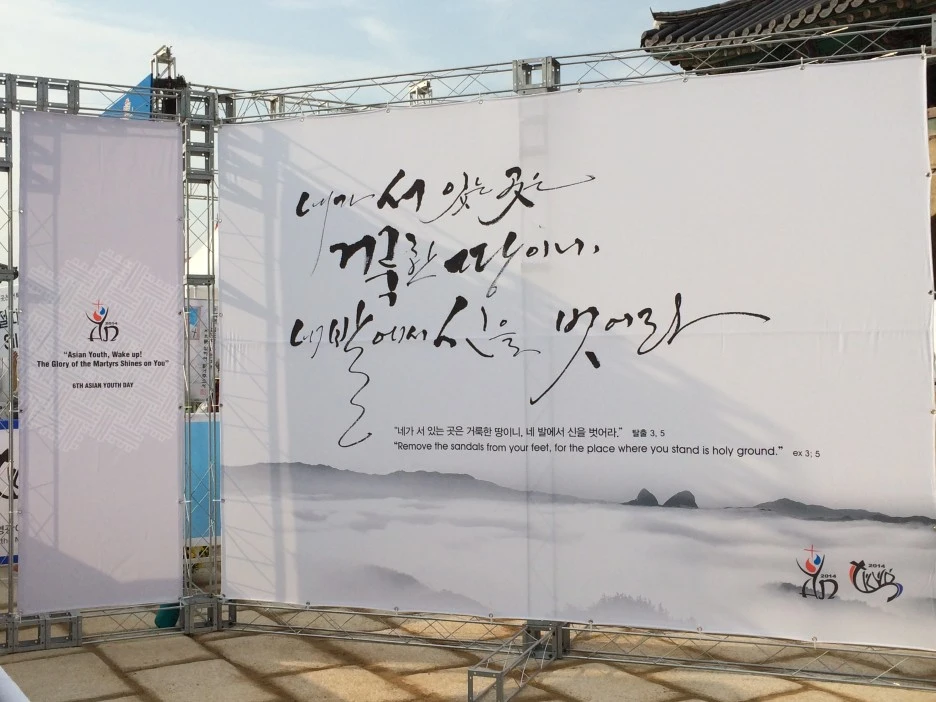 2014
"Asian Youth, Wake up!
The Glory of the Martyrs Shines on You"
6TH ASIAN YOUTH DAY
네가 서 있는 곳은
거룩한 땅이니,
네 발에서 신을 벗어라
"네가 서 있는 곳은 거룩한 땅이니, 네 발에서 신을 벗어라." 탈출 3, 5
"Remove the sandals from your feet, for the place where you stand is holy ground." ex 3; 5
2014
2014